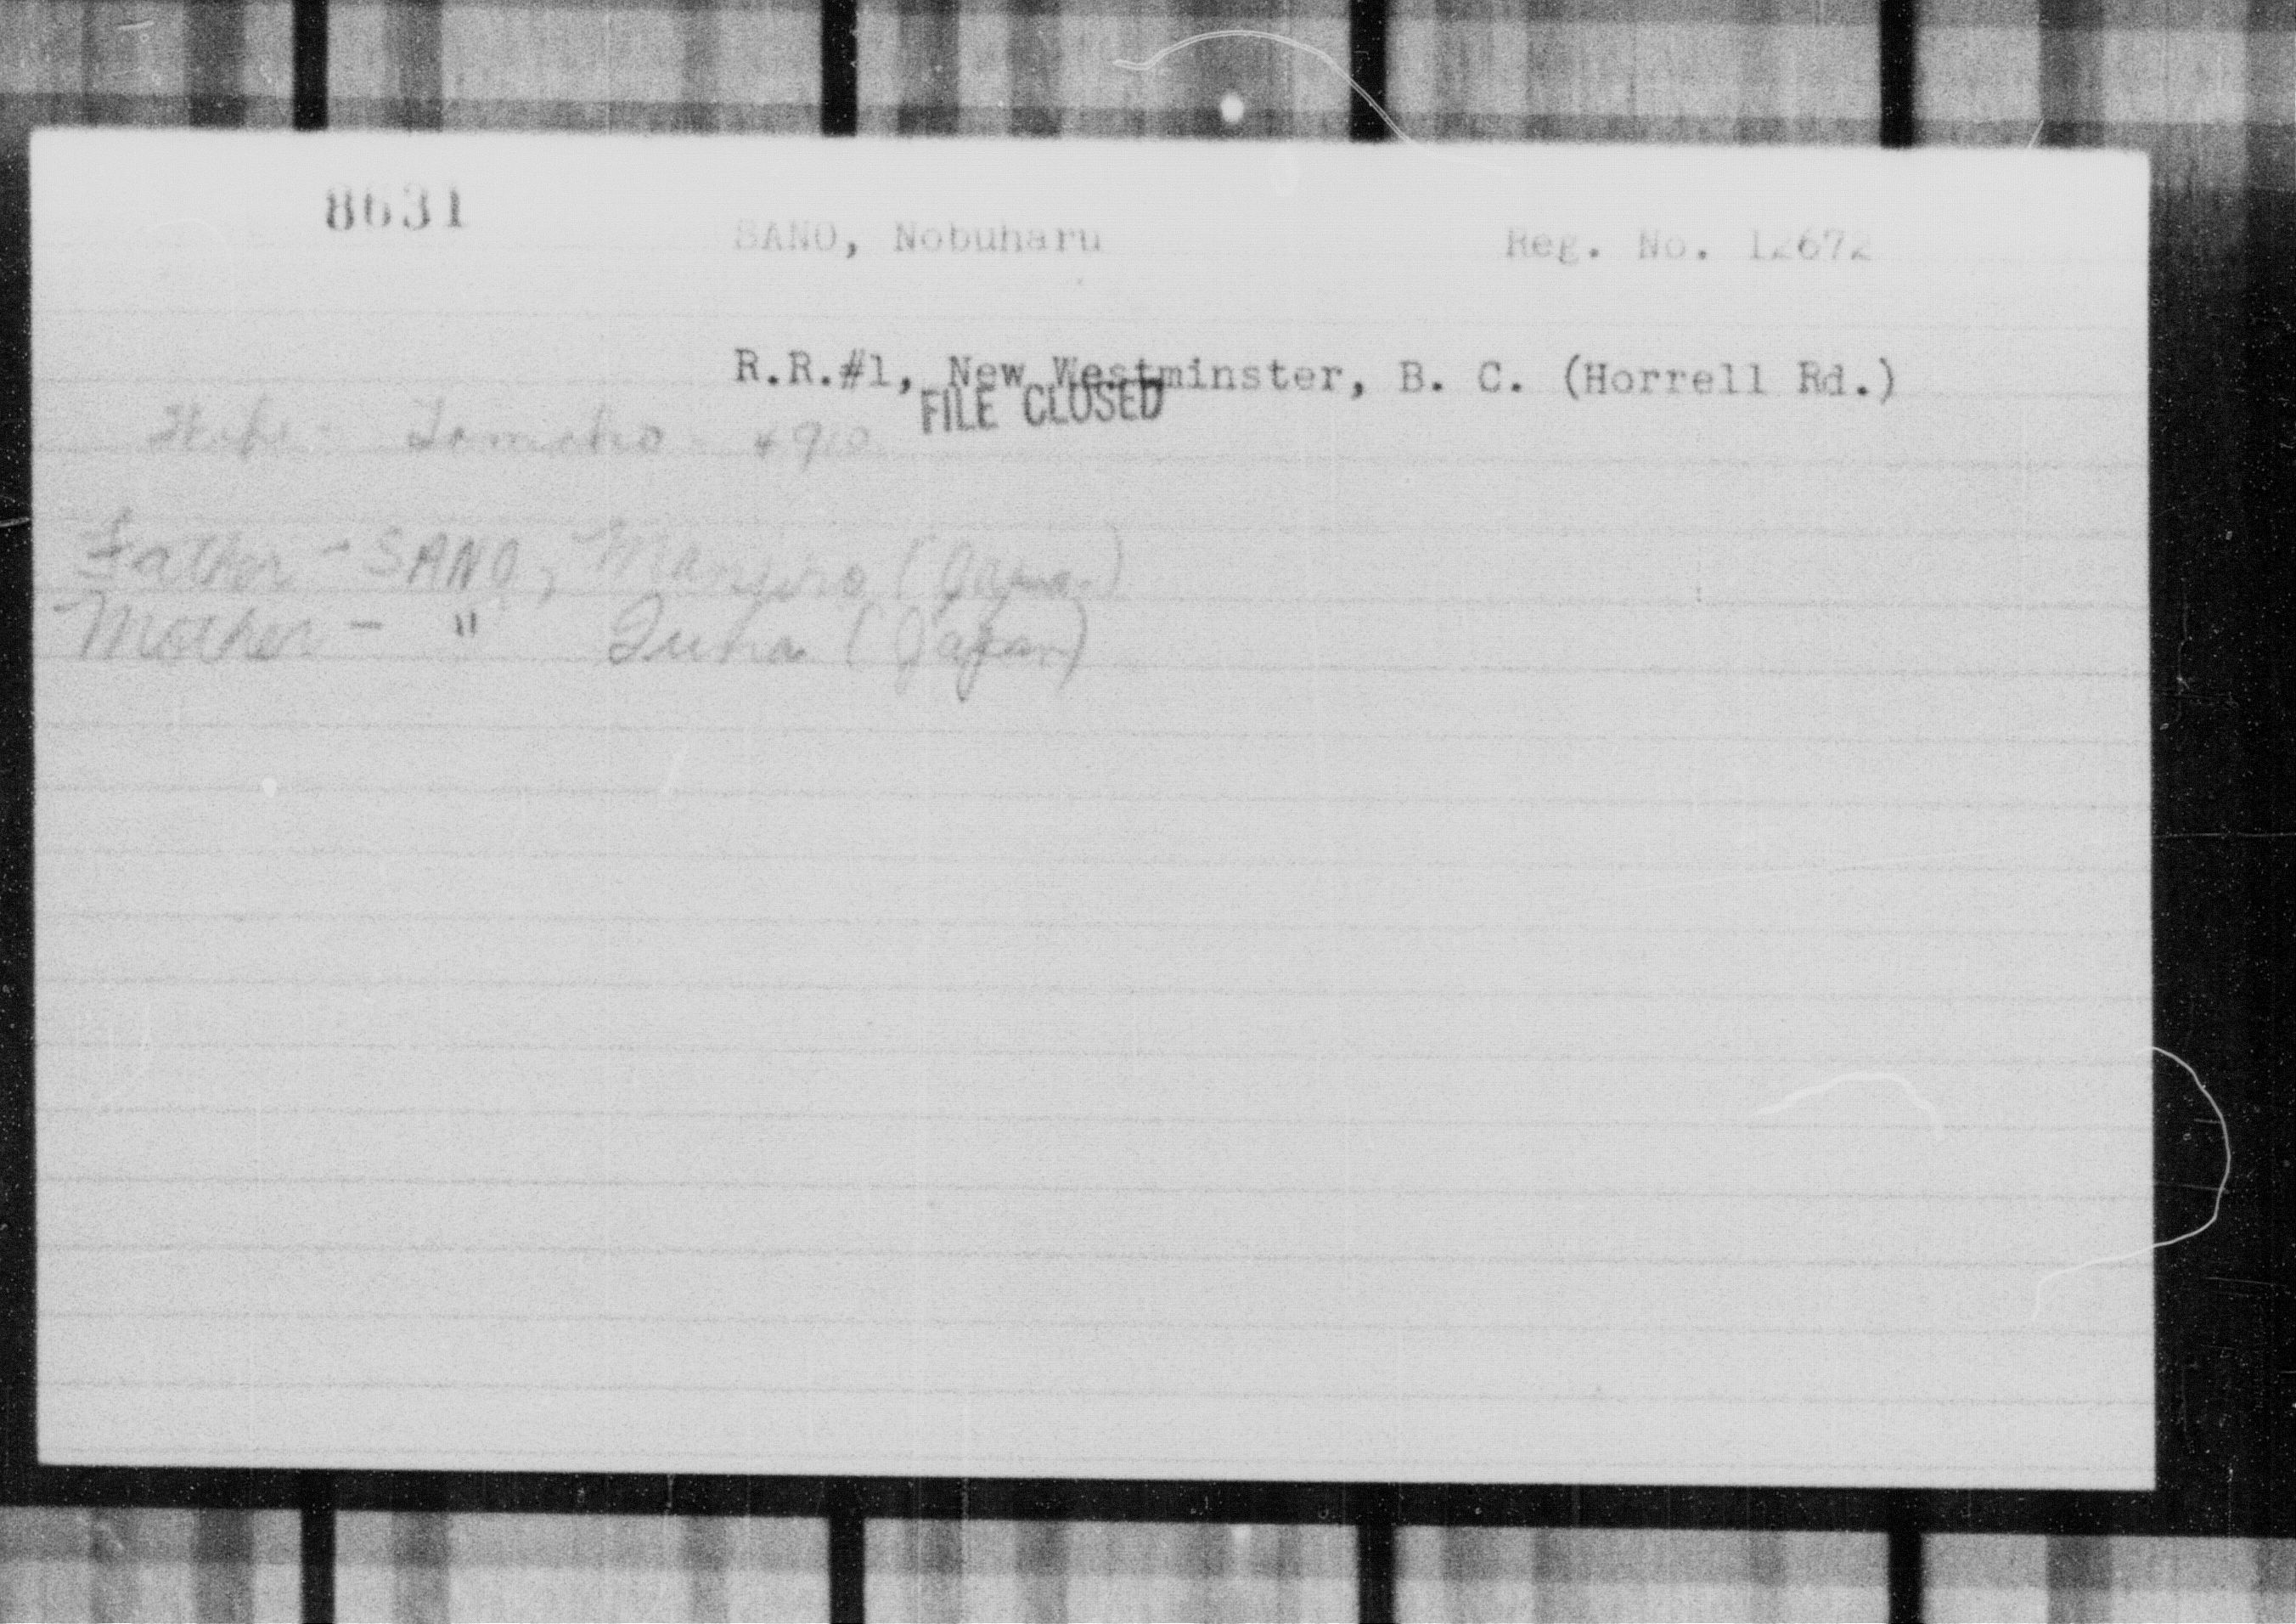 8631
SANO, Nobuharu Reg. No. 12672
R.R.#1, New Westminster, B. C. (Horrell Rd.)
FILE CLOSED
Father - SANO, Manjiro (Japan)
Mother - " (Japan)